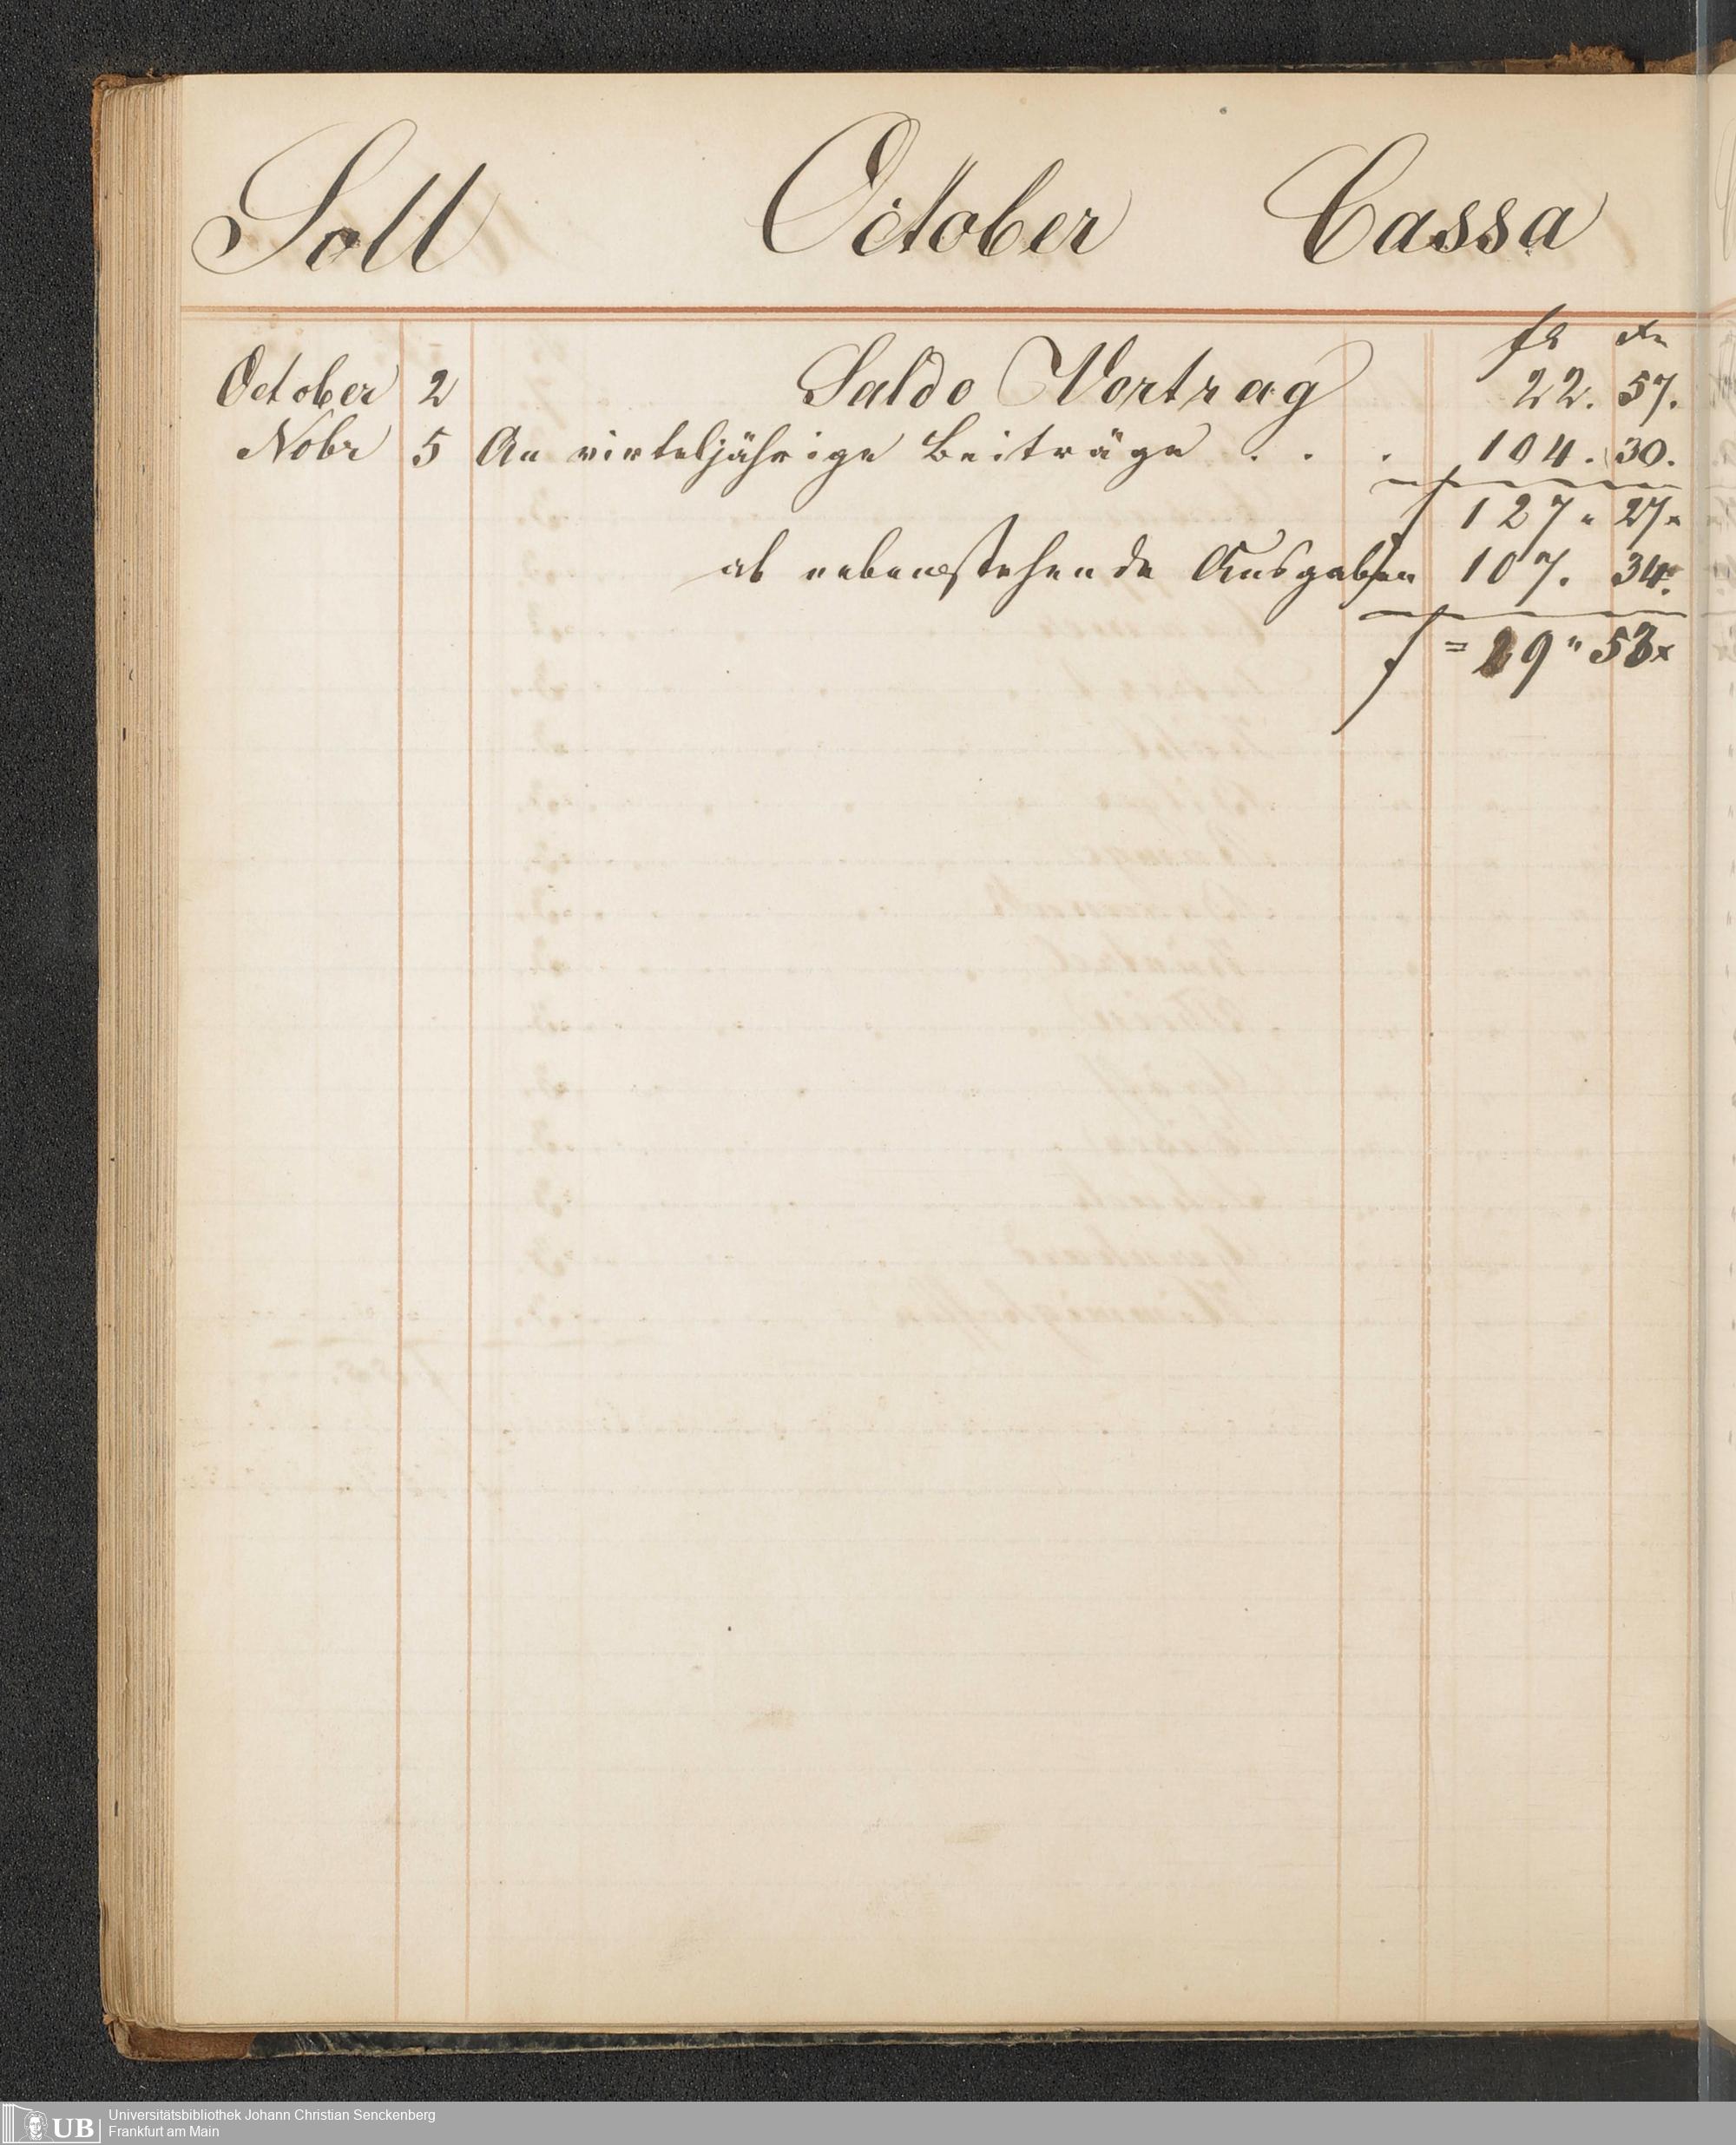 Soll October Cassa
fl xr
October 2 Saldo Vortrag 22. 57.
Nobr 5 An virteljährige Beiträge . . . 104. 30.
f 127 " 27 x
ab nebenstehende Ausgaben f 107. 34.
f = 19 " 53 x
Universitätsbibliothek Johann Christian Senckenberg
Frankfurt am Main
UB